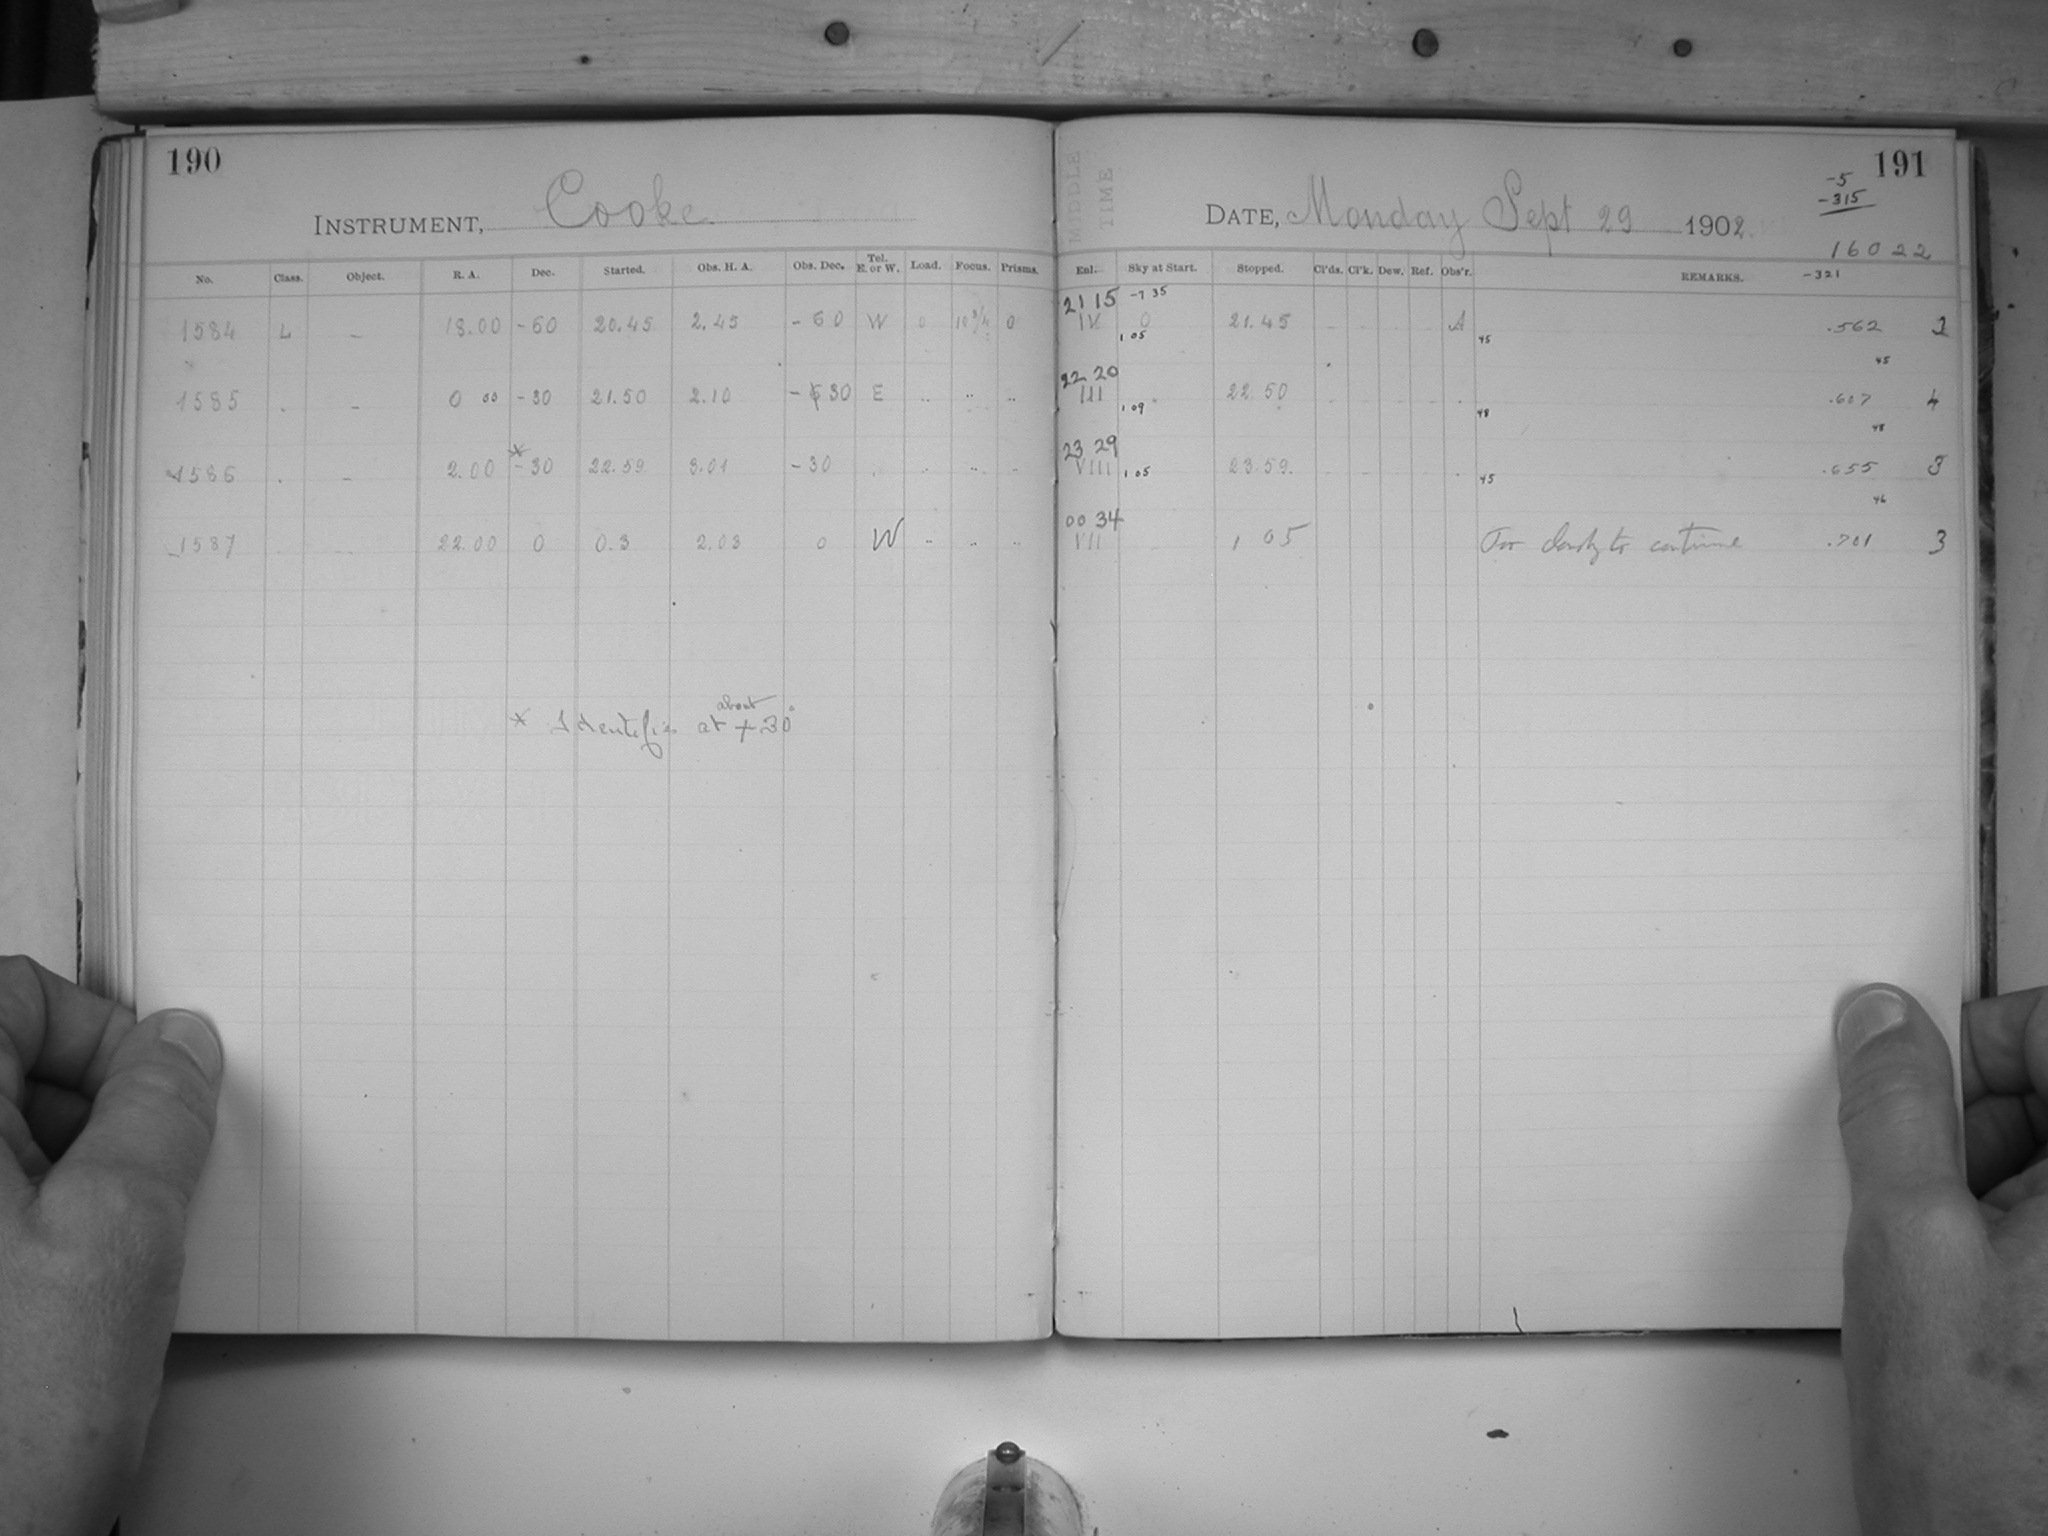 190
INSTRUMENT, Cooke
No. Class. Object. R. A. Dec. Started. Obs. H. A. Obs. Dec. Tel. E. or W. Load. Focus. Prisms.
1584 L – 18.00 -60 20.45 2.45 -60 W 0 10 3/4 0
1585 . – 0 00 -30 21.50 2.10 - 30 E .. .. ..
1586 . – 2.00 *-30 22.59 3.01 -30 . .. .. ..
1587 22.00 0 0.3 2.03 0 W .. .. ..
* Identifies at about +30°
MIDDLE TIME
191
-5
-315
DATE, Monday Sept 29 1902.
16022
-321
Enl. Sky at Start. Stopped. Cl'ds. Cl'k. Dew. Ref. Obs'r. REMARKS.
21 15 -7 35
IV 0 21.45 A .562 3
1 05 45
45
22 20
III 22 50 .607 4
1 09 48
48
23 29
VIII 1 05 23.59. 45 .655 3
46
00 34
VII 1 05 Too cloudy to continue .701 3